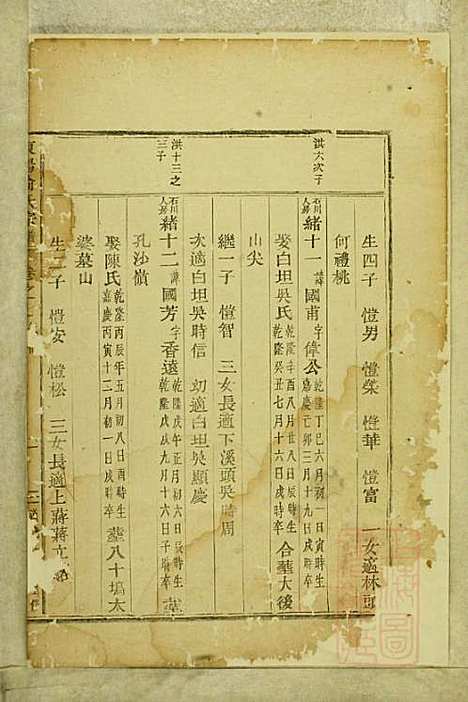 生四子 愷男 愷榮 愷華 愷富 一女適林頭
何禮桃
洪六次子
石川人緒十一 諱國甫 字偉公 乾隆丁巳六月初一日寅時生 嘉慶乙卯三月十九日戌時卒
娶白坦吳氏 乾隆辛酉八月廿八日戌時生 乾隆癸丑七月十六日戌時卒 合塟大後
山尖
繼一子 愷智 三女長適下溪頭吳時周
次適白坦吳時信 幼適白坦吳顯慶
洪十三之三子
石川人緒十二 諱國芳 字香遠 乾隆戊午正月初六日辰時生 乾隆戊戌九月十六日子時卒 塟
孔沙嶺
娶陳氏 乾隆丙辰年五月初八日酉時生 嘉慶丙寅十二月初一日戌時卒 塟八十塢太
婆墓山
生二子 愷安 愷松 三女長適上蔣蔣